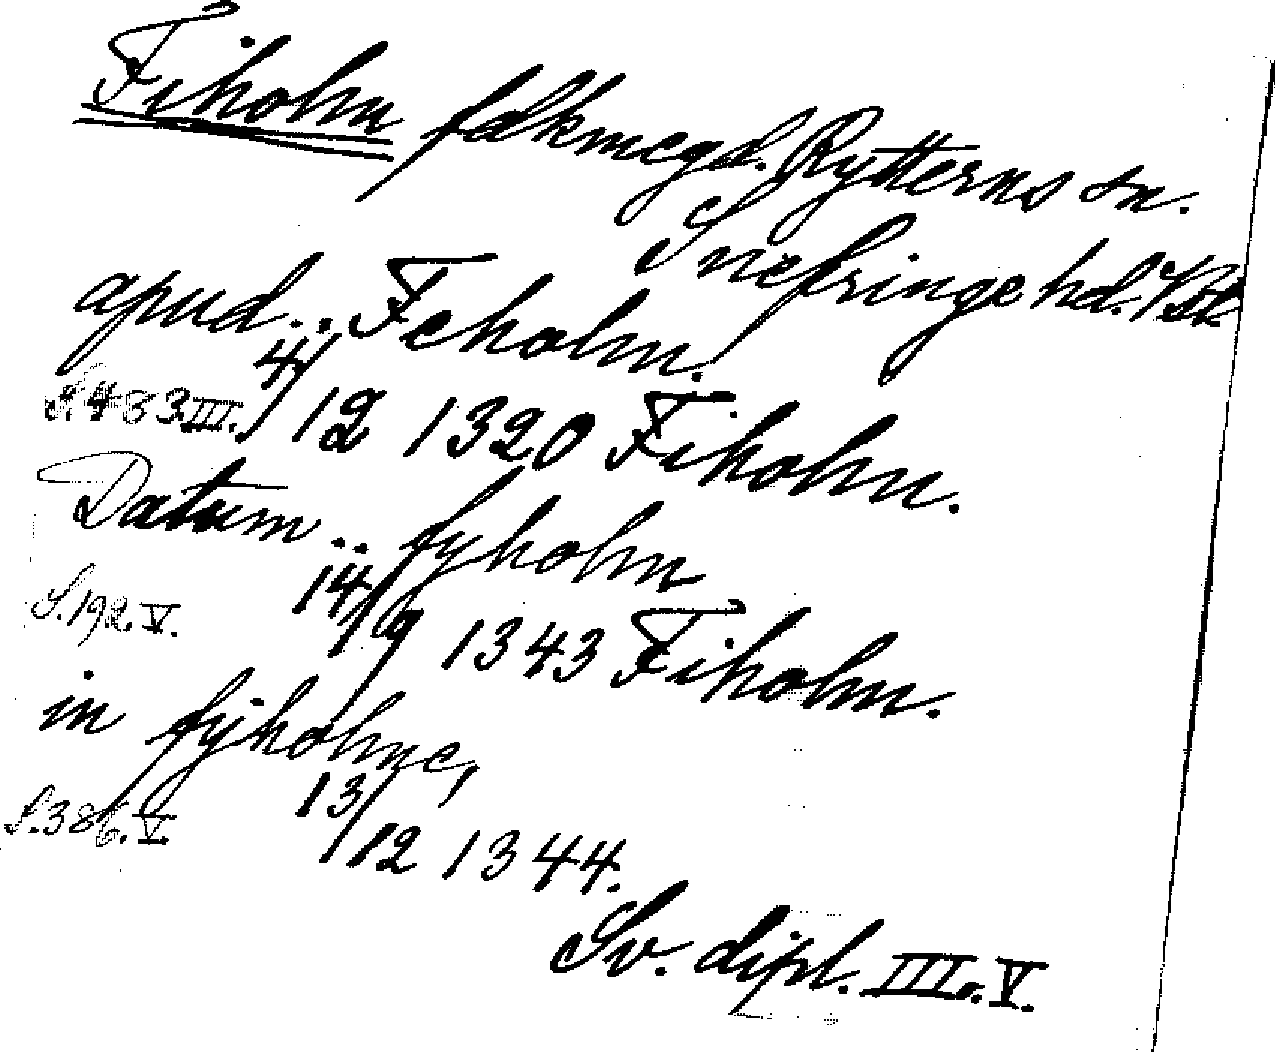 Fiholm fdkmcgd. Rytterns sn.
Snefringe hd. Vstm.
apud.. Feholm.
S. 483 III. 4/12 1320 Fiholm.
Datum.. fyholm
S. 192. V. 14/9 1343 Fiholm.
in fyholme,
S. 386. V. 13/12 1344.
Sv. dipl. III o. V.